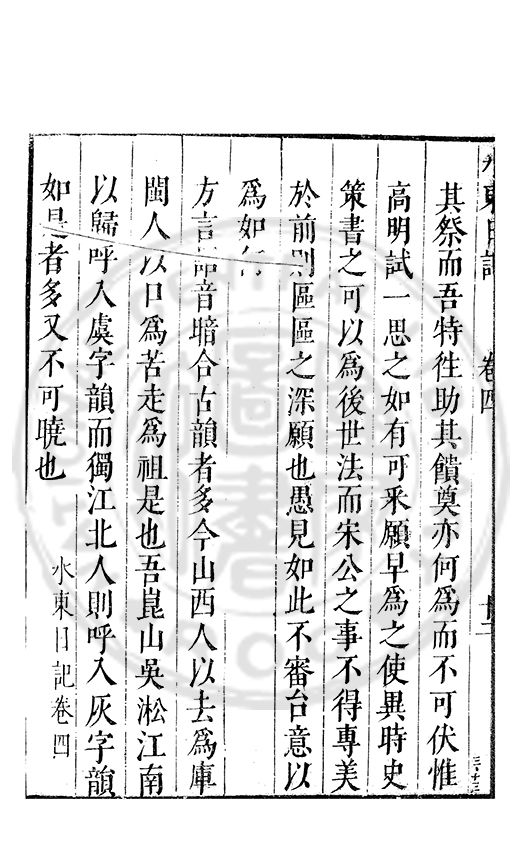 水東日記 卷四 廿二
其祭而吾特往助其饋奠亦何爲而不可伏惟
高明試一思之如有可采願早爲之使異時史
策書之可以爲後世法而宋公之事不得專美
於前則區區之深願也愚見如此不審台意以
爲如何
方言語音暗合古韻者多今山西人以去爲庫
閩人以口爲苦走爲祖是也吾崑山吳淞江南
以歸呼入虞字韻而獨江北人則呼入灰字韻
如是者多又不可曉也
水東日記卷四